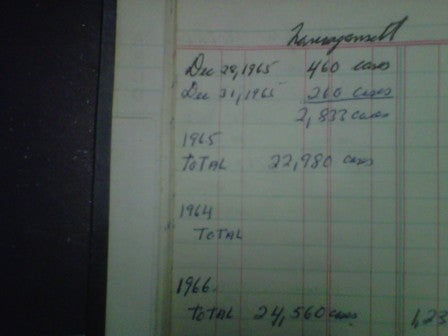 Narragansett
Dec 29, 1965 460 cases
Dec 31, 1965 260 cases
2,833 cases
1965
TOTAL 22,980 cases
1964
TOTAL
1966
TOTAL 24,560 cases 1,23